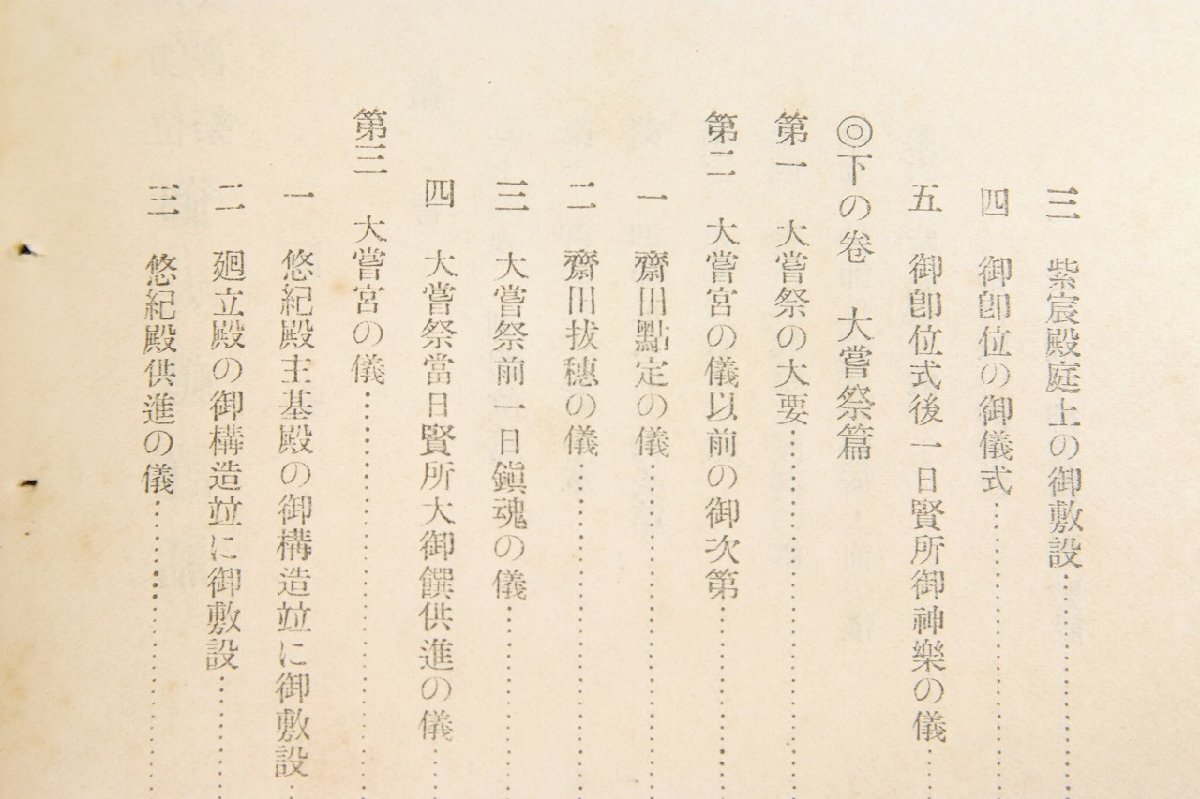 三 紫宸殿庭上の御敷設……………
四 御卽位の御儀式……………
五 御卽位式後一日賢所御神樂の儀……
◎下の卷 大嘗祭篇
第一 大嘗祭の大要……………
第二 大嘗宮の儀以前の御次第……………
一 齋田點定の儀……………
二 齋田拔穗の儀……………
三 大嘗祭前一日鎭魂の儀……………
四 大嘗祭當日賢所大御饌供進の儀……
第三 大嘗宮の儀……………
一 悠紀殿主基殿の御構造竝に御敷設…
二 廻立殿の御構造竝に御敷設……………
三 悠紀殿供進の儀……………